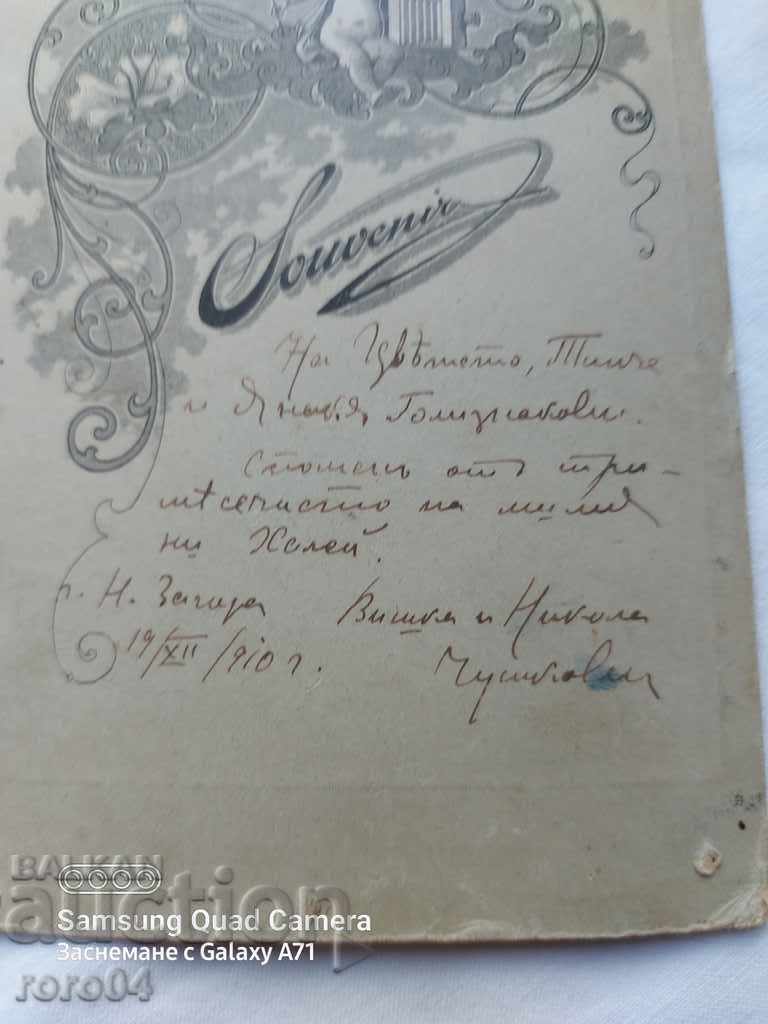 Souvenir
На Цвѣтето, Тинче
и Янакя Голизнакови.
Споменъ отъ три-
мѣсечието на милия
ни Холей.
г. Н. Загора Вишка и Никола
19/XII/910 г. Чушкови
BALKAN
auction
SAMSUNG QUAD CAMERA
Заснемане с Galaxy A71
roro04